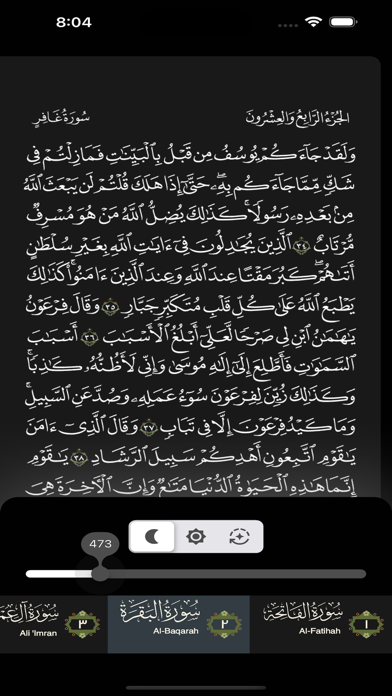 8:04
الجُزْءُ الرَّابِعُ وَالعِشْرُونَ
سُورَةُ غَافِرٍ
وَلَقَدْ جَآءَكُمْ يُوسُفُ مِن قَبْلُ بِٱلْبَيِّنَٰتِ فَمَازِلْتُمْ فِى
شَكٍّ مِّمَّا جَآءَكُم بِهِۦۖ حَتَّىٰٓ إِذَا هَلَكَ قُلْتُمْ لَن يَبْعَثَ ٱللَّهُ
مِنۢ بَعْدِهِۦ رَسُولًاۚ كَذَٰلِكَ يُضِلُّ ٱللَّهُ مَنْ هُوَ مُسْرِفٌ
مُّرْتَابٌ ٣٤ ٱلَّذِينَ يُجَٰدِلُونَ فِىٓ ءَايَٰتِ ٱللَّهِ بِغَيْرِ سُلْطَٰنٍ
أَتَىٰهُمْۖ كَبُرَ مَقْتًا عِندَ ٱللَّهِ وَعِندَ ٱلَّذِينَ ءَامَنُوا۟ۚ كَذَٰلِكَ
يَطْبَعُ ٱللَّهُ عَلَىٰ كُلِّ قَلْبِ مُتَكَبِّرٍ جَبَّارٍ ٣٥ وَقَالَ فِرْعَوْنُ
يَٰهَٰمَٰنُ ٱبْنِ لِى صَرْحًا لَّعَلِّىٓ أَبْلُغُ ٱلْأَسْبَٰبَ ٣٦ أَسْبَٰبَ
ٱلسَّمَٰوَٰتِ فَأَطَّلِعَ إِلَىٰٓ إِلَٰهِ مُوسَىٰ وَإِنِّى لَأَظُنُّهُۥ كَٰذِبًاۚ
وَكَذَٰلِكَ زُيِّنَ لِفِرْعَوْنَ سُوٓءُ عَمَلِهِۦ وَصُدَّ عَنِ ٱلسَّبِيلِۚ
وَمَا كَيْدُ فِرْعَوْنَ إِلَّا فِى تَبَابٍ ٣٧ وَقَالَ ٱلَّذِىٓ ءَامَنَ
يَٰقَوْمِ ٱتَّبِعُونِ أَهْدِكُمْ سَبِيلَ ٱلرَّشَادِ ٣٨ يَٰقَوْمِ
إِنَّمَا هَٰذِهِ ٱلْحَيَوٰةُ ٱلدُّنْيَا مَتَٰعٌ وَإِنَّ ٱلْءَاخِرَةَ هِىَ
473
سُورَةُ الفَاتِحَةِ ١
Al-Fatihah
سُورَةُ البَقَرَةِ ٢
Al-Baqarah
سُورَةُ آلِ عِمْ ٣
Ali 'Imran